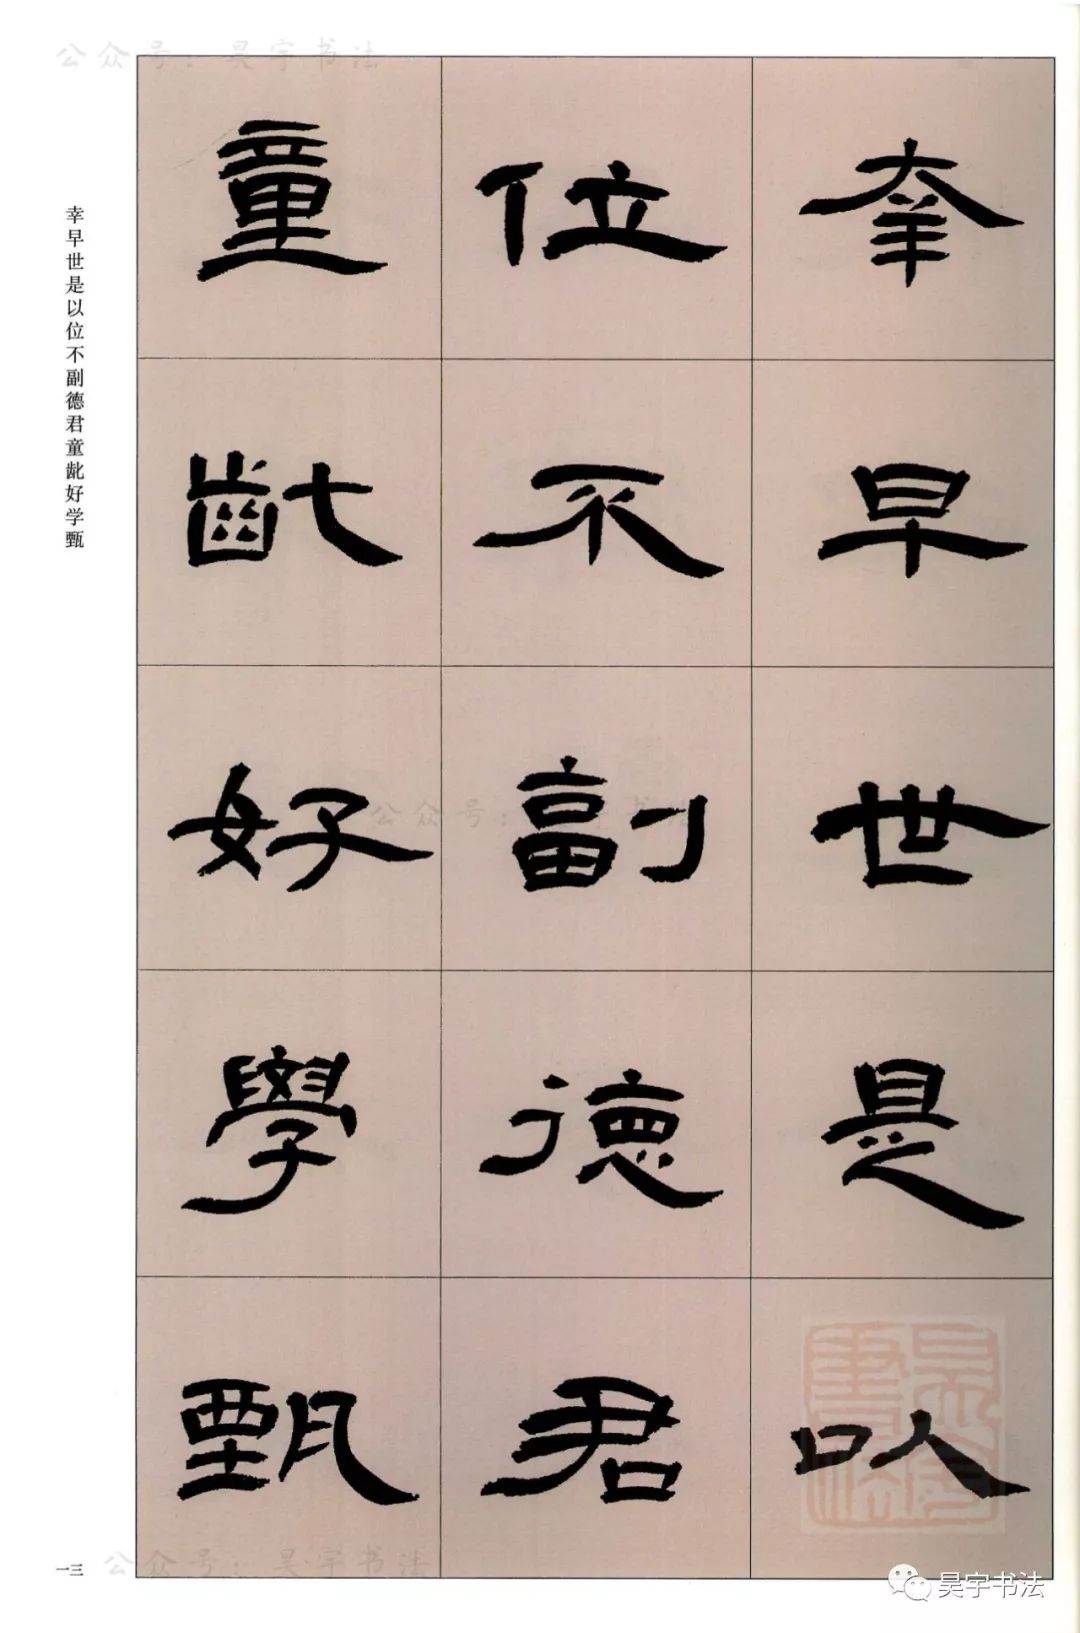 公众号：昊宇书法
幸早世是以
位不副德君
童齔好學甄
幸早世是以位不副德君童龀好学甄
公众号：昊宇书法
一三
公众号：昊宇书法
昊宇书法